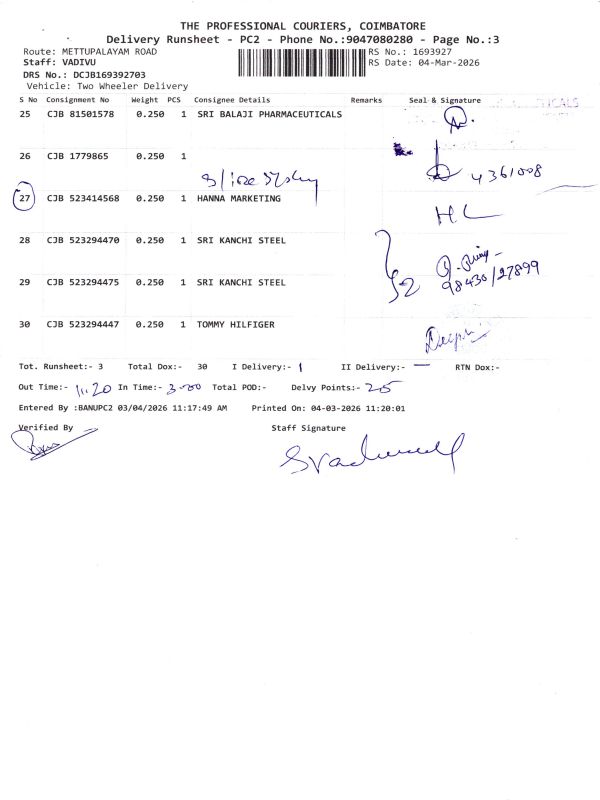 THE PROFESSIONAL COURIERS, COIMBATORE
Delivery Runsheet - PC2 - Phone No.:9047080280 - Page No.:3
Route: METTUPALAYAM ROAD RS No.: 1693927
Staff: VADIVU RS Date: 04-Mar-2026
DRS No.: DCJB169392703
Vehicle: Two Wheeler Delivery
S No Consignment No Weight PCS Consignee Details Remarks Seal & Signature
25 CJB 81501578 0.250 1 SRI BALAJI PHARMACEUTICALS
26 CJB 1779865 0.250 1 4361008
27 CJB 523414568 0.250 1 HANNA MARKETING HL
28 CJB 523294470 0.250 1 SRI KANCHI STEEL
29 CJB 523294475 0.250 1 SRI KANCHI STEEL 98430/27899
30 CJB 523294447 0.250 1 TOMMY HILFIGER
Tot. Runsheet:- 3 Total Dox:- 30 I Delivery:- 1 II Delivery:- — RTN Dox:-
Out Time:- 11.20 In Time:- 3-00 Total POD:- Delvy Points:- 25
Entered By :BANUPC2 03/04/2026 11:17:49 AM Printed On: 04-03-2026 11:20:01
Verified By Staff Signature